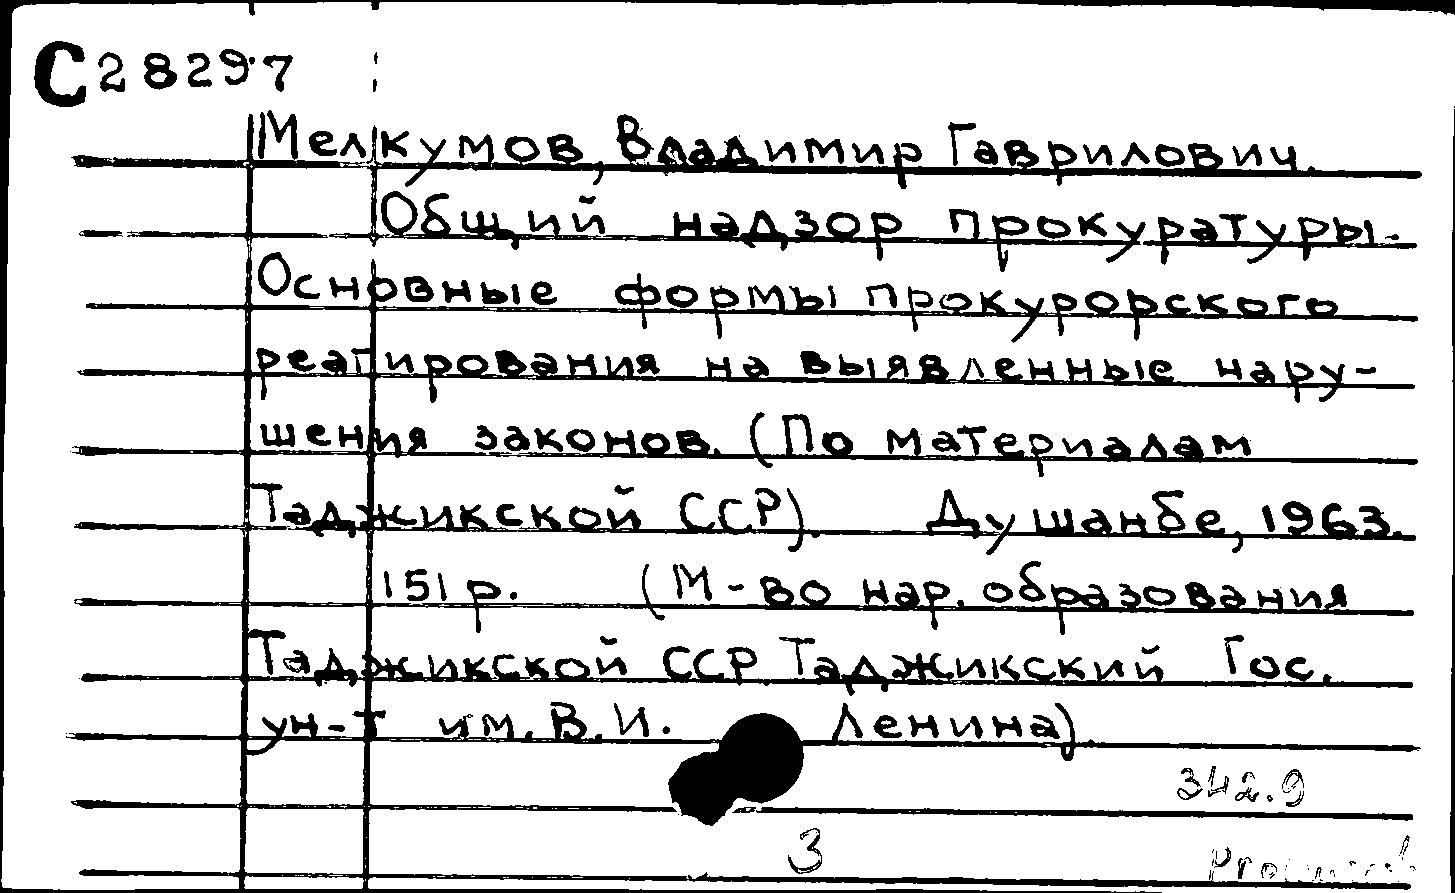 С 28297
Мелкумов, Владимир Гаврилович.
Общий надзор прокуратуры.
Основные формы прокурорского
реагирования на выявленные нару-
шения законов. (По материалам
Таджикской ССР). Душанбе, 1963.
151 р. (М-во нар. образования
Таджикской ССР Таджикский Гос.
ун-т им. В. И. Ленина).
342.9
3